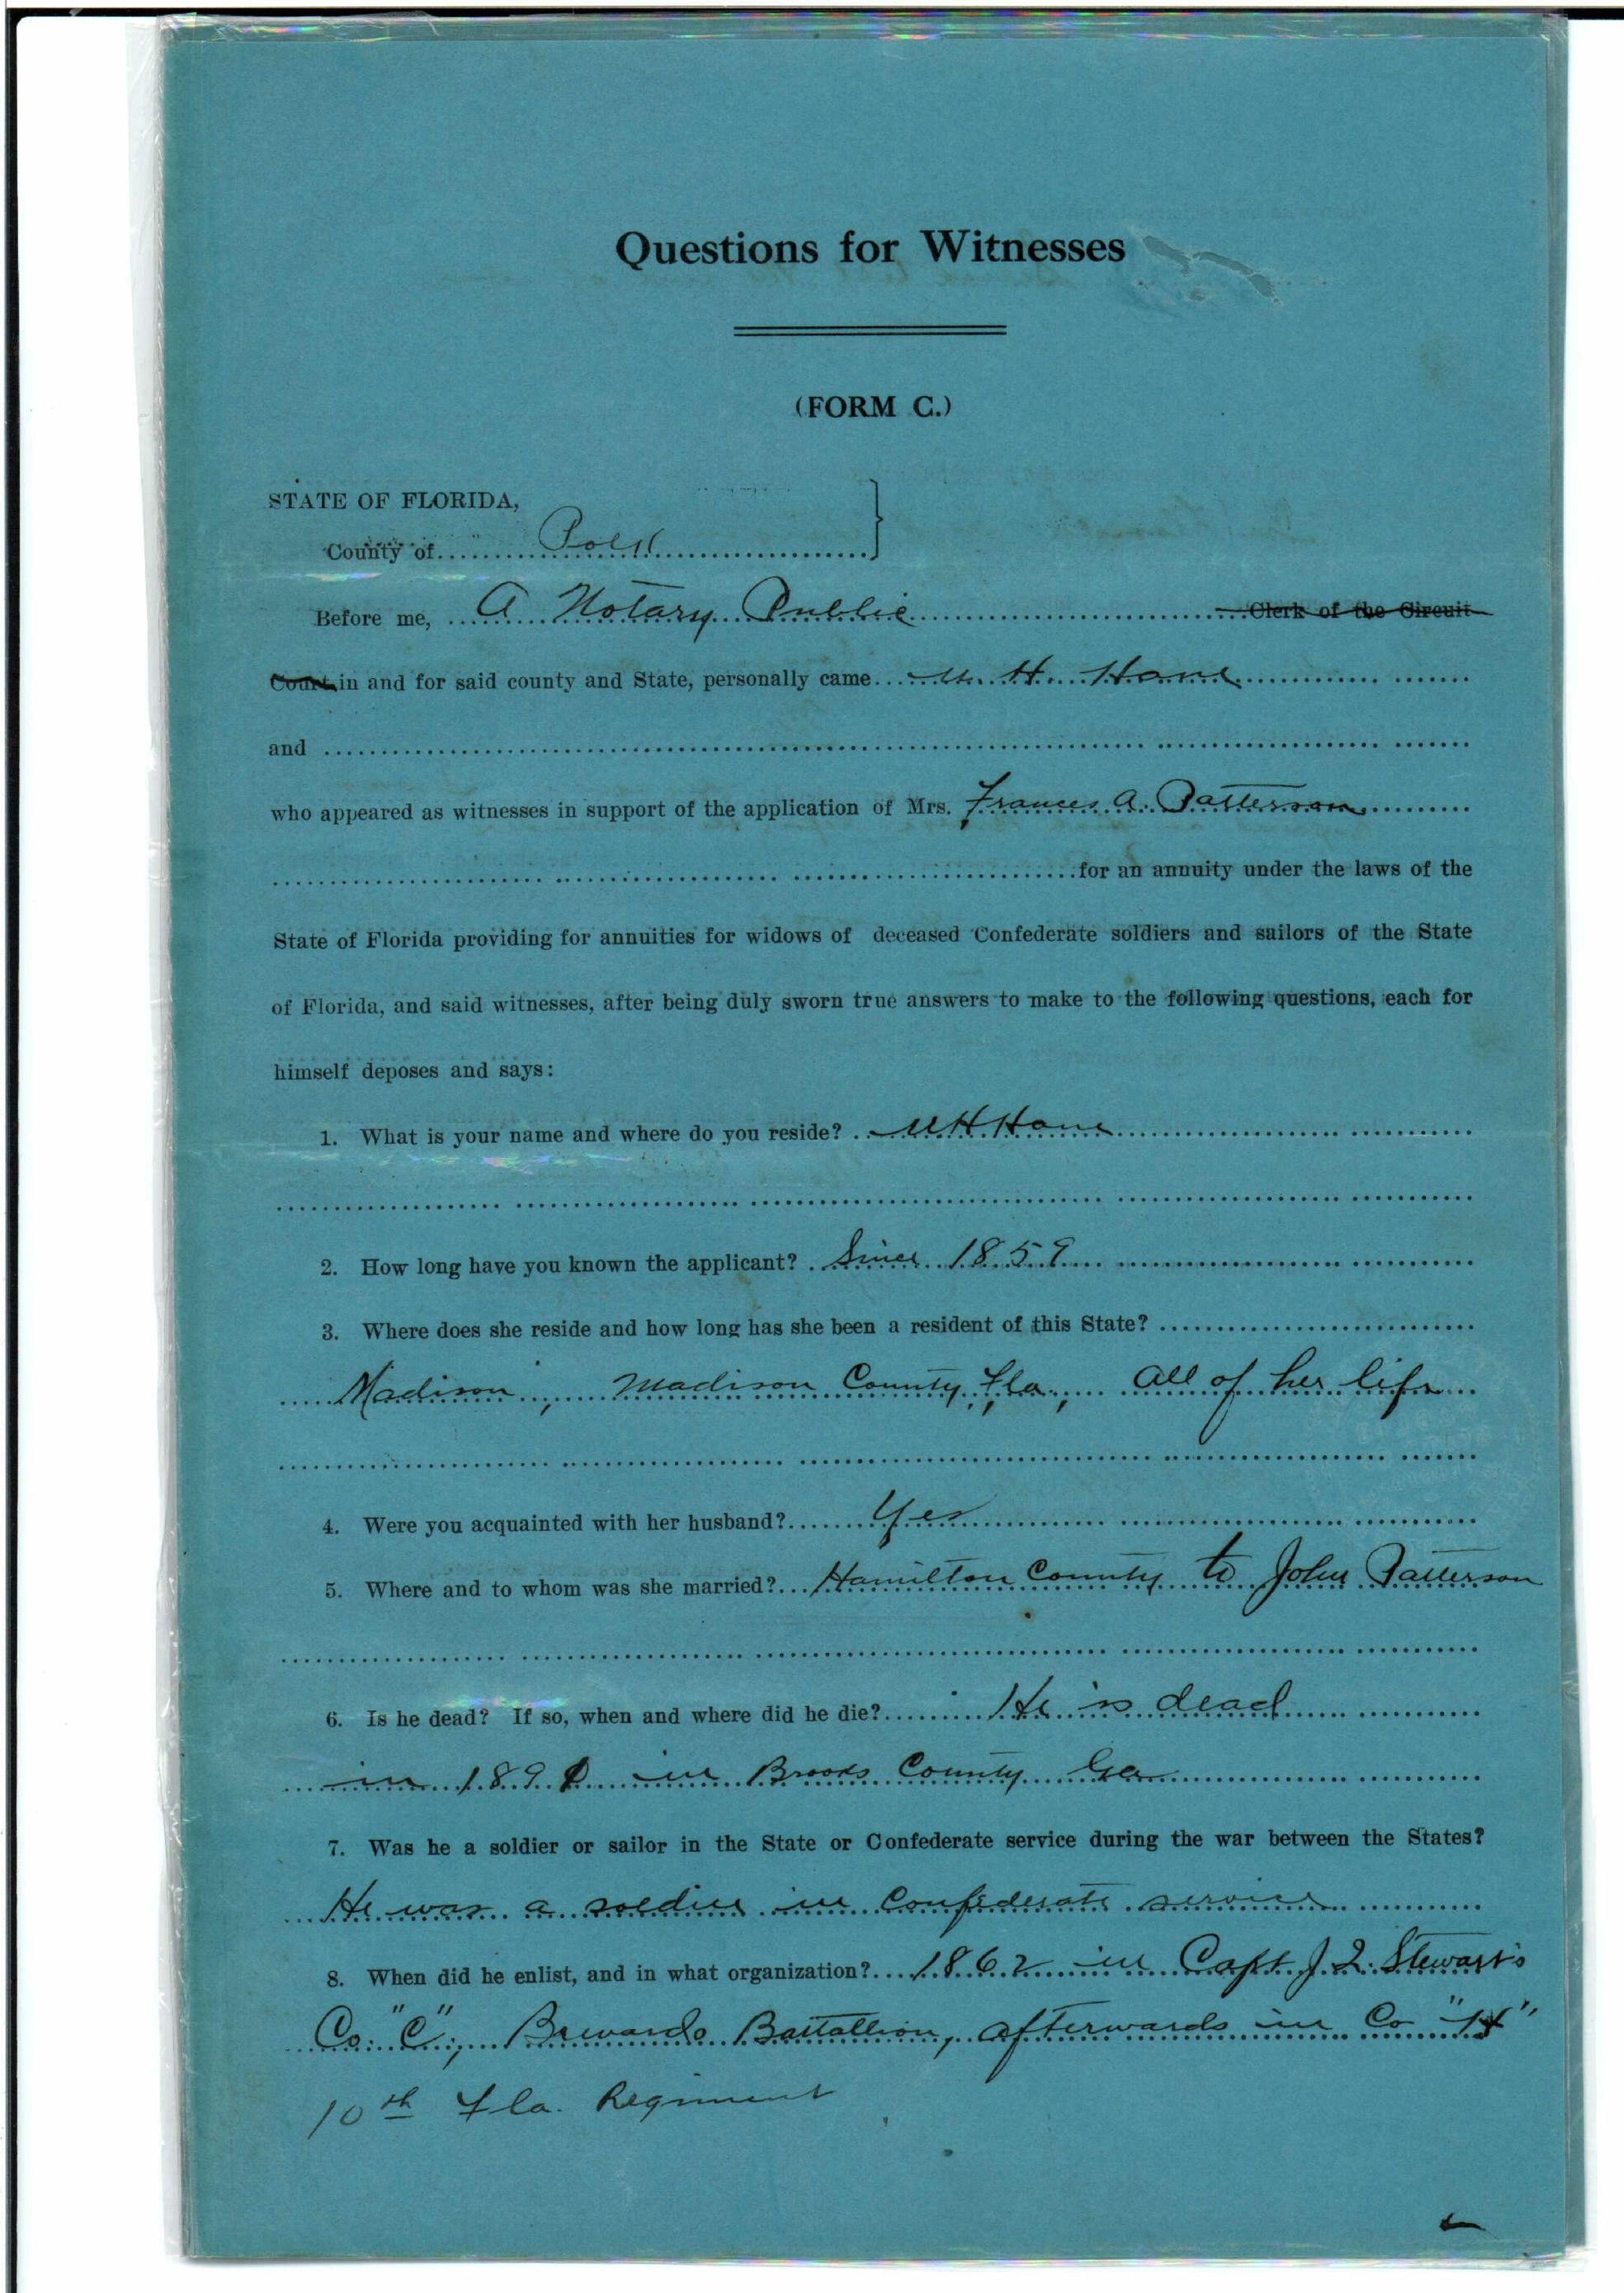 Questions for Witnesses
(FORM C.)
STATE OF FLORIDA,
County of Polk
Before me, A Notary Public Clerk of the Circuit
Court in and for said county and State, personally came H.
and
who appeared as witnesses in support of the application of Mrs. Frances A. Patterson
for an annuity under the laws of the
State of Florida providing for annuities for widows of deceased Confederate soldiers and sailors of the State
of Florida, and said witnesses, after being duly sworn true answers to make to the following questions, each for
himself deposes and says:
1. What is your name and where do you reside?
2. How long have you known the applicant? Since 1859
3. Where does she reside and how long has she been a resident of this State?
Madison, Madison County, Fla, All of her life
4. Were you acquainted with her husband? Yes
5. Where and to whom was she married? Hamilton County to John Patterson
6. Is he dead? If so, when and where did he die? He is dead
in in Brooks County Ga
7. Was he a soldier or sailor in the State or Confederate service during the war between the States?
He was a soldier in Confederate service
8. When did he enlist, and in what organization? 1862 in Capt. J. Stewart's
Co. "C", Brevards Battallion, afterwards in Co
10th Fla. Regiment